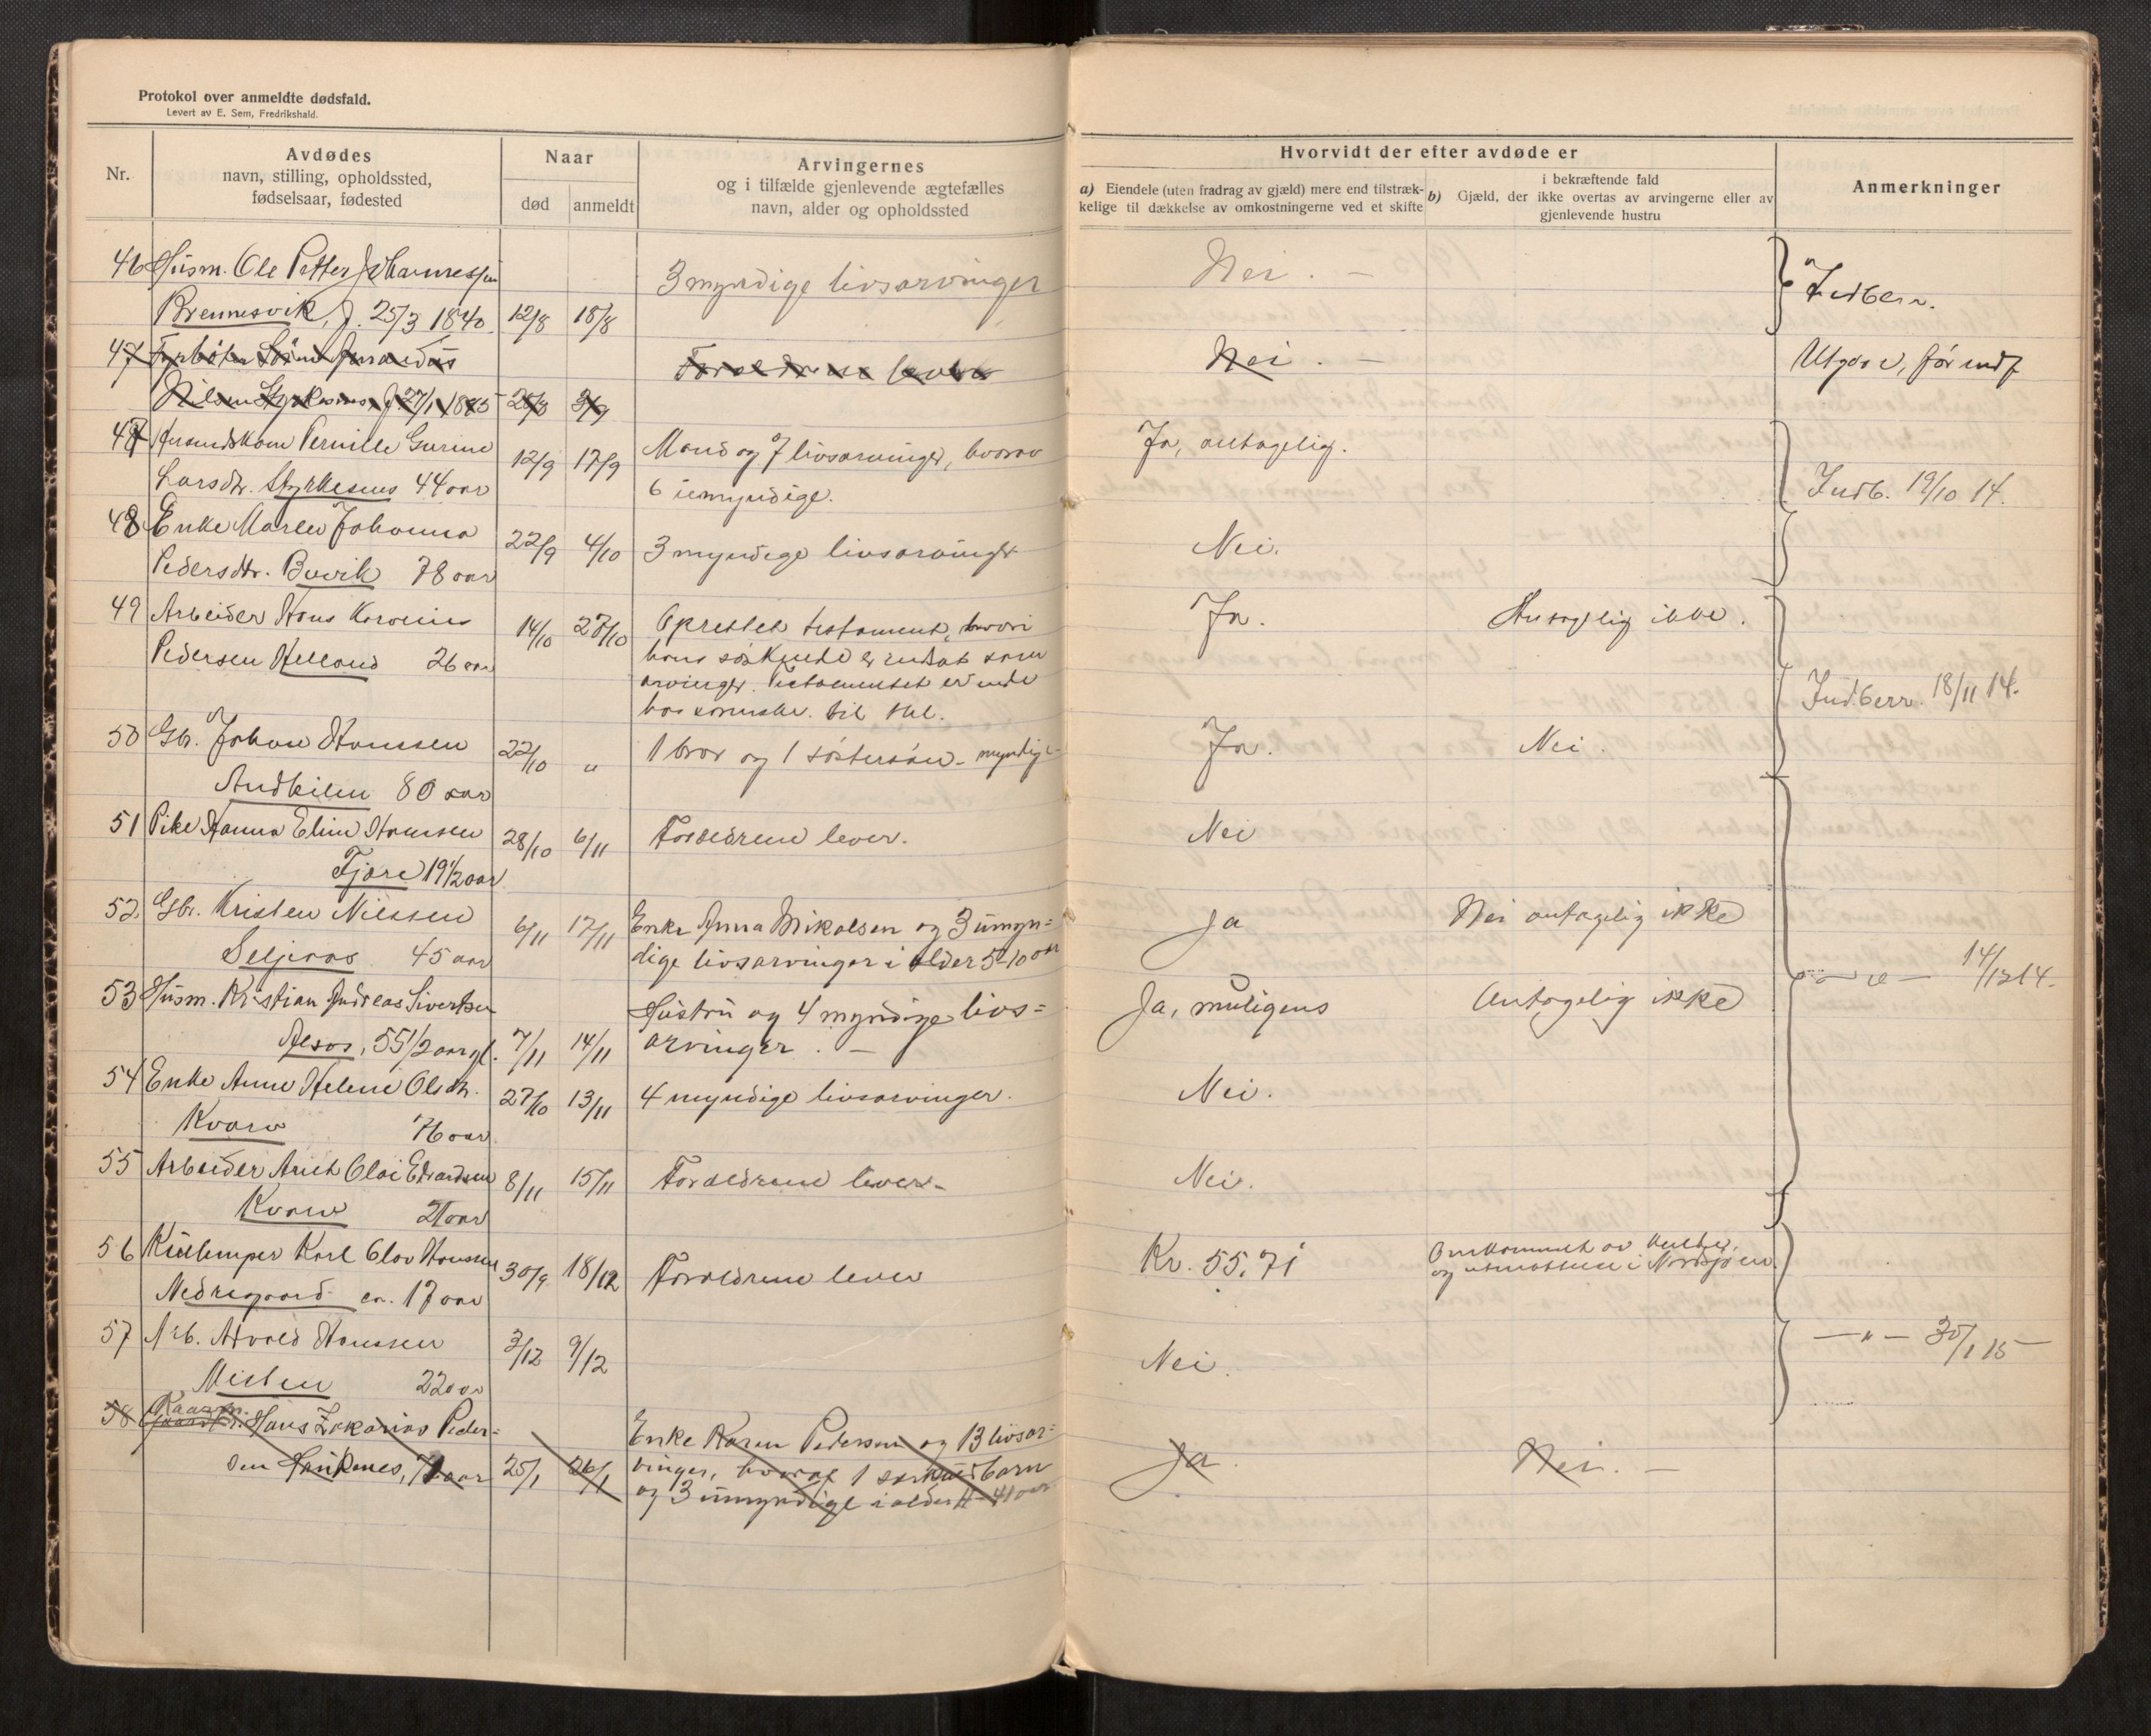 Protokol over anmeldte dødsfald.
Levert av E. Sem, Fredrikshald.
Nr.
Avdødes
navn, stilling, opholdssted,
fødselsaar, fødested
Naar
død
anmeldt
Arvingernes
og i tilfælde gjenlevende ægtefælles
navn, alder og opholdssted
Hvorvidt der efter avdøde er
a) Eiendele (uten fradrag av gjæld) mere end tilstræk-
kelige til dækkelse av omkostningerne ved et skifte
i bekræftende fald
b) Gjæld, der ikke overtas av arvingerne eller av
gjenlevende hustru
Anmerkninger
46 Husm. Ole Petter Johannessen 3 myndige livsarvinger Nei. —
Brennesvik, f. 25/3 1840. 12/8 18/8 Indberr.
47 Forældrene lever Nei. — Utgaar,
Nilsen 27/1
47 Pernille Gurine Mand og 7 livsarvinger, hvorav Ja, antagelig.
Larsdtr. Styrkesnes 44 aar 12/9 17/9 6 umyndige. Indb. 19/10 14.
48 Enke Maren Johanna
Pedersdtr. Buvik 78 aar 22/9 4/10 3 myndige livsarvinger Nei.
49 Arbeider Hans Pedersen Helland 26 aar 14/10 27/10 Oprettet testament, hvori Ja. Antagelig ikke.
hans søskende er indsat som
arvinger. Testamentet er
Indberr. 18/11 14.
50 Gbr. Johan Hanssen 22/10 " 1 bror og 1 søstersøn - myndige Ja. Nei.
80 aar
51 Pike Hanna Eline Hansen 28/10 6/11 Forældrene lever. Nei
Fjære 19 1/2 aar
52. Gbr. Kristen Nilssen 6/11 17/11 Enke Anna Mikalsen og 3 umyn= Ja Nei antagelig ikke
Seljeaas 45 aar dige livsarvinger i alder 5-10 aar
— " — 14/12 14.
53 Husm. Kristian Andreas Sivertsen Hustru og 4 myndige livs= Ja, muligens Antagelig ikke
Alsos, 55 1/2 aar gl. 7/11 14/11 arvinger. —
54 Enke Anne Helene Olsdtr. 27/10 13/11 4 myndige livsarvinger. Nei.
Kvarv 76 aar
55 Arbeider Arnt Olai Edvardsen 8/11 15/11 Forældrene lever. Nei.
Kvarv 21 aar
56 Karl Olav Hanssen 30/9 18/12 Forældrene lever Kr. 55,71 Omkommet av kulde,
og utmattelse i Nordsjøen.
Nedregaard ca. 17 aar
57 Arb. Hanssen 3/12 9/12 Nei. — " — 30/1 15 —
Misten 22 aar
58 Kaarm. Hans Zakarias Peder= Enke Karen Pedersen og 13 livsar= Ja. Nei. —
sen aar 25/1 26/1 vinger, hvoraf 1 særkuldbarn
og 3 umyndige i alder